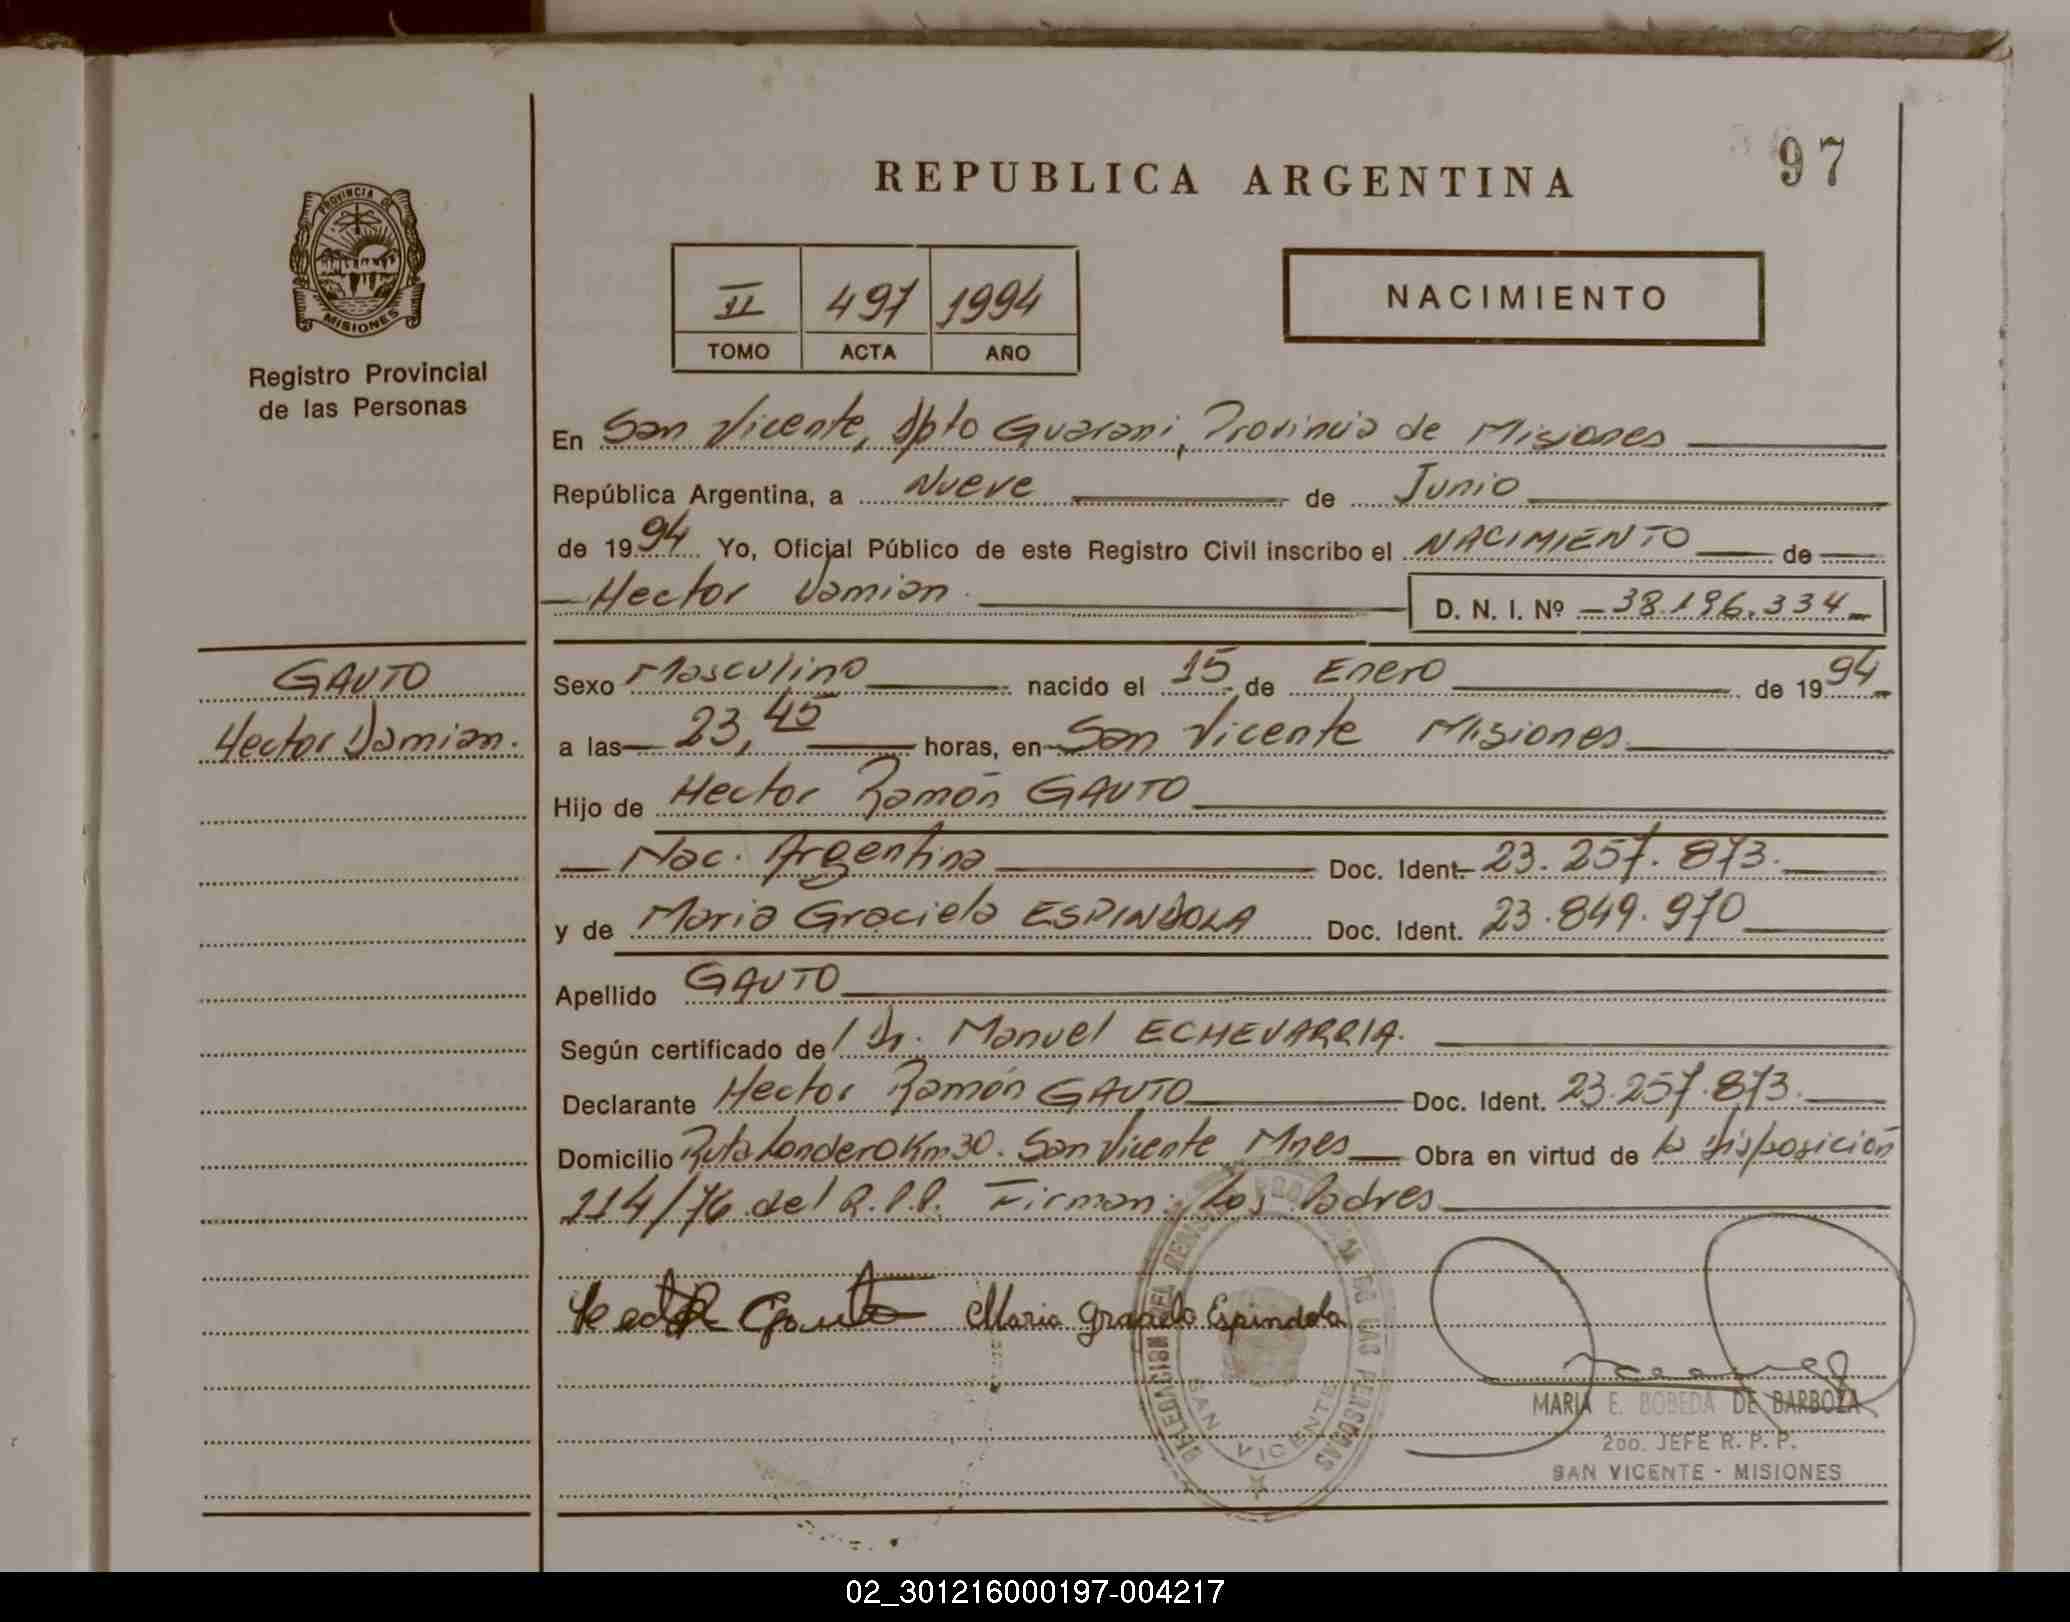 REPUBLICA ARGENTINA
97
PROVINCIA DE
MISIONES
Registro Provincial
de las Personas
II 497 1994
TOMO ACTA AÑO
NACIMIENTO
En San Vicente, Dpto Guarani, Provincia de Misiones
República Argentina, a Nueve de Junio
de 1994 Yo, Oficial Público de este Registro Civil inscribo el NACIMIENTO de
Hector Damian. D. N. I. Nº 38.196.334
GAUTO
Hector Damian.
Sexo Masculino nacido el 15 de Enero de 1994
a las 23,45 horas, en San Vicente Misiones
Hijo de Hector Ramón GAUTO
Nac. Argentina Doc. Ident. 23.257.873.
y de Maria Graciela ESPINDOLA Doc. Ident. 23.849.970
Apellido GAUTO
Según certificado de Dr. Manuel ECHEVARRIA.
Declarante Hector Ramón GAUTO Doc. Ident. 23.257.873.
Domicilio Ruta Km 30. San Vicente Mnes Obra en virtud de la disposición
114/76 del R.P.P. Firman: Los Padres
Hector R Gauto Maria Graciela Espindola
DELEGACION DEL REGISTRO PROVINCIAL DE LAS PERSONAS
SAN VICENTE
MARIA E. BOBEDA DE BARBOZA
2DO. JEFE R. P. P.
SAN VICENTE - MISIONES
02_301216000197-004217